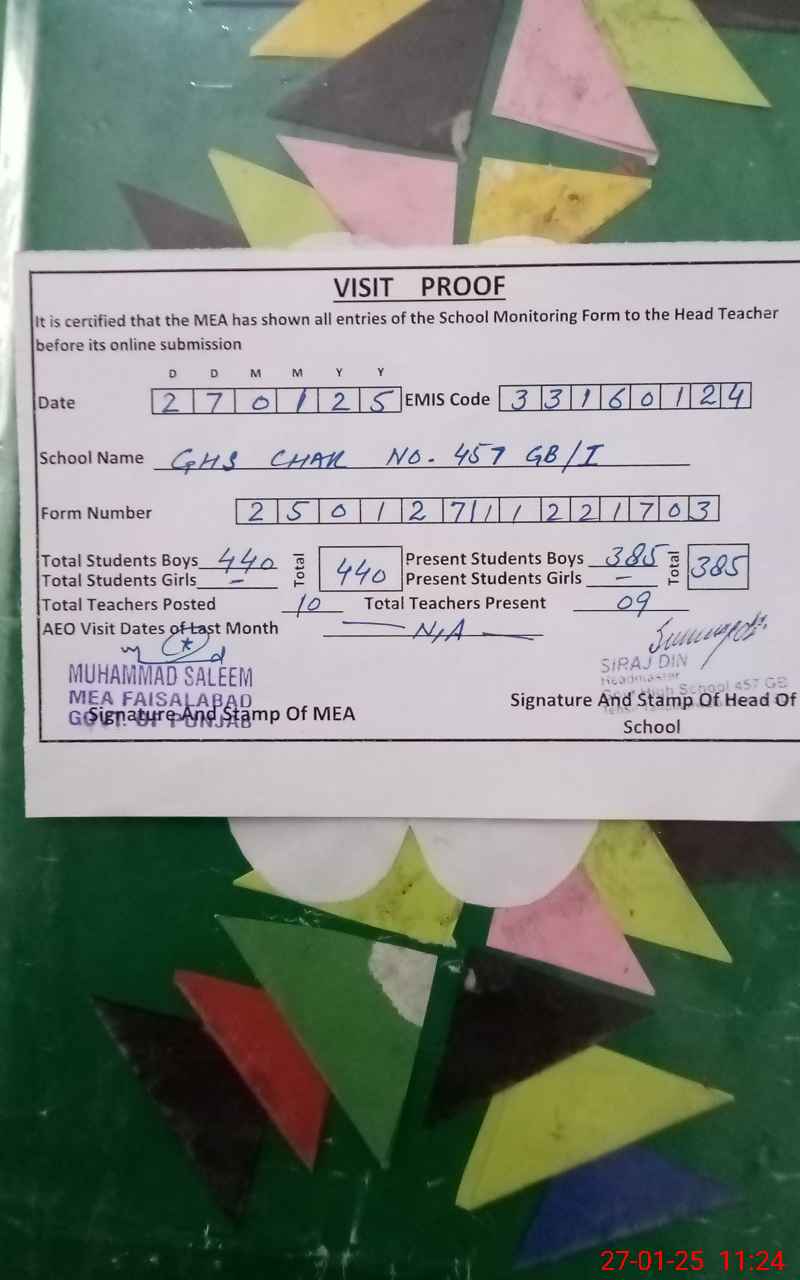 VISIT PROOF
It is certified that the MEA has shown all entries of the School Monitoring Form to the Head Teacher
before its online submission
D D M M Y Y
Date 2 7 0 1 2 5 EMIS Code 3 3 1 6 0 1 2 4
School Name GHS CHAK NO. 457 GB/I
Form Number 2 5 0 1 2 7 1 1 2 2 1 7 0 3
Total Students Boys 440 Total 440 Present Students Boys 385 Total 385
Total Students Girls - Present Students Girls -
Total Teachers Posted 10 Total Teachers Present 09
AEO Visit Dates of Last Month N/A
MUHAMMAD SALEEM
MEA FAISALABAD
GOVT. OF PUNJAB
Signature And Stamp Of MEA
SIRAJ DIN
Headmaster
Govt High School 457 GB
Signature And Stamp Of Head Of
School
27-01-25 11:24